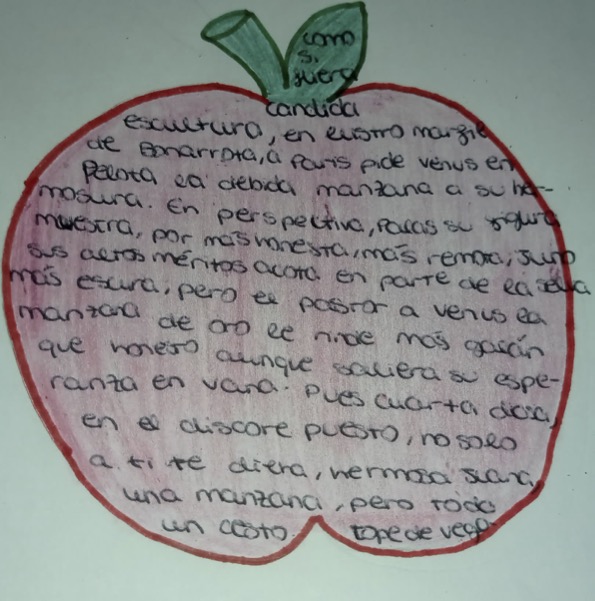 como
si
fuera
candida
escultura, en lustro marfil
de Bonarrota, a Paris pide venus en
Pelota la debida manzana a su her-
mosura. En perspectiva, Palas su figura
muestra, por más honesta, más remota, Juno
sus altos méritos acota en parte de la selva
más escura, pero el pastor a venus la
manzana de oro le rinde más galán
que honesto aunque saliera su espe-
ranza en vana. Pues cuarta diosa,
en el discore puesto, no solo
a ti te diera, hermosa
una manzana, pero todo
un cesto. Lope de vega